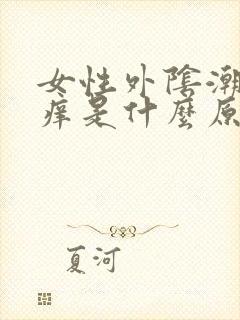 女性外陰潮
痒是什麼原
夏河